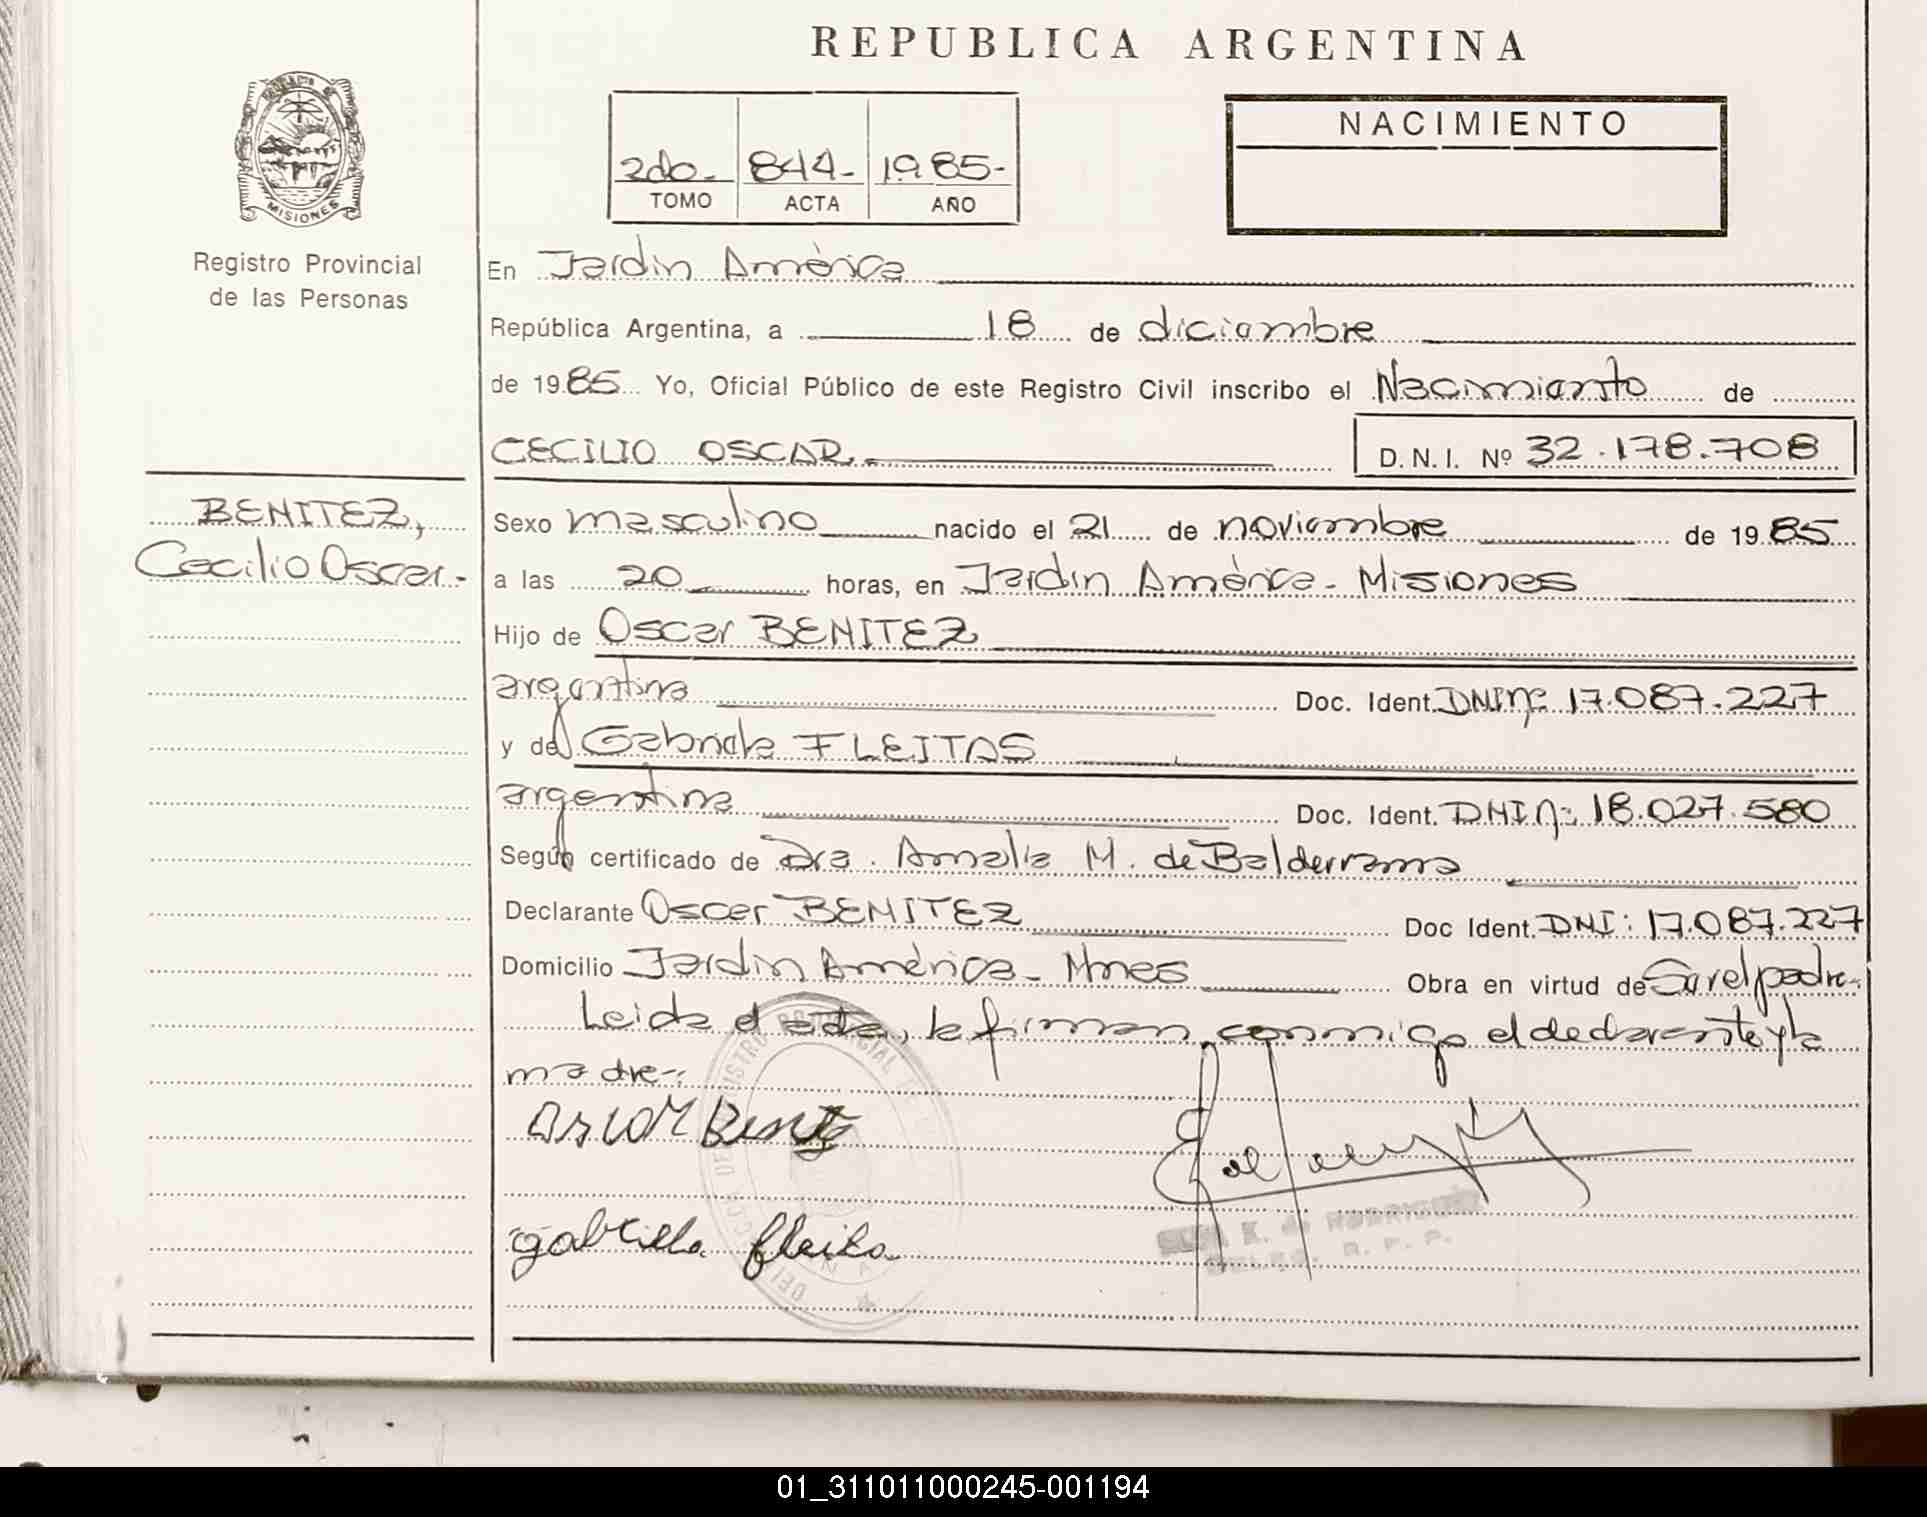 REPUBLICA ARGENTINA
2do.- 844- 1985-
TOMO ACTA AÑO
NACIMIENTO
MISIONES
Registro Provincial
de las Personas
BENITEZ,
Cecilio Oscar.-
En Jardin América
República Argentina, a 18 de diciembre
de 1985 Yo, Oficial Público de este Registro Civil inscribo el Nacimiento de
CECILIO OSCAR.
D.N.I. Nº 32.178.708
Sexo masculino nacido el 21 de noviembre de 1985
a las 20 horas, en Jardin América - Misiones
Hijo de Oscar BENITEZ
argentina Doc. Ident. DNI Nº 17.087.227
y de Gabriela FLEITAS
argentina Doc. Ident. DNI Nº 18.027.580
Según certificado de Dra. Amalia M. de Balderrama
Declarante Oscar BENITEZ Doc Ident. DNI: 17.087.227
Domicilio Jardin América - Mnes Obra en virtud de Ser el padre.-
Leida el acta, la firman conmigo el declarante y la
madre.-
Oscar Benitez
gabriela fleita
K. de RODRIGUEZ
DELEG. R. P. P.
01_311011000245-001194